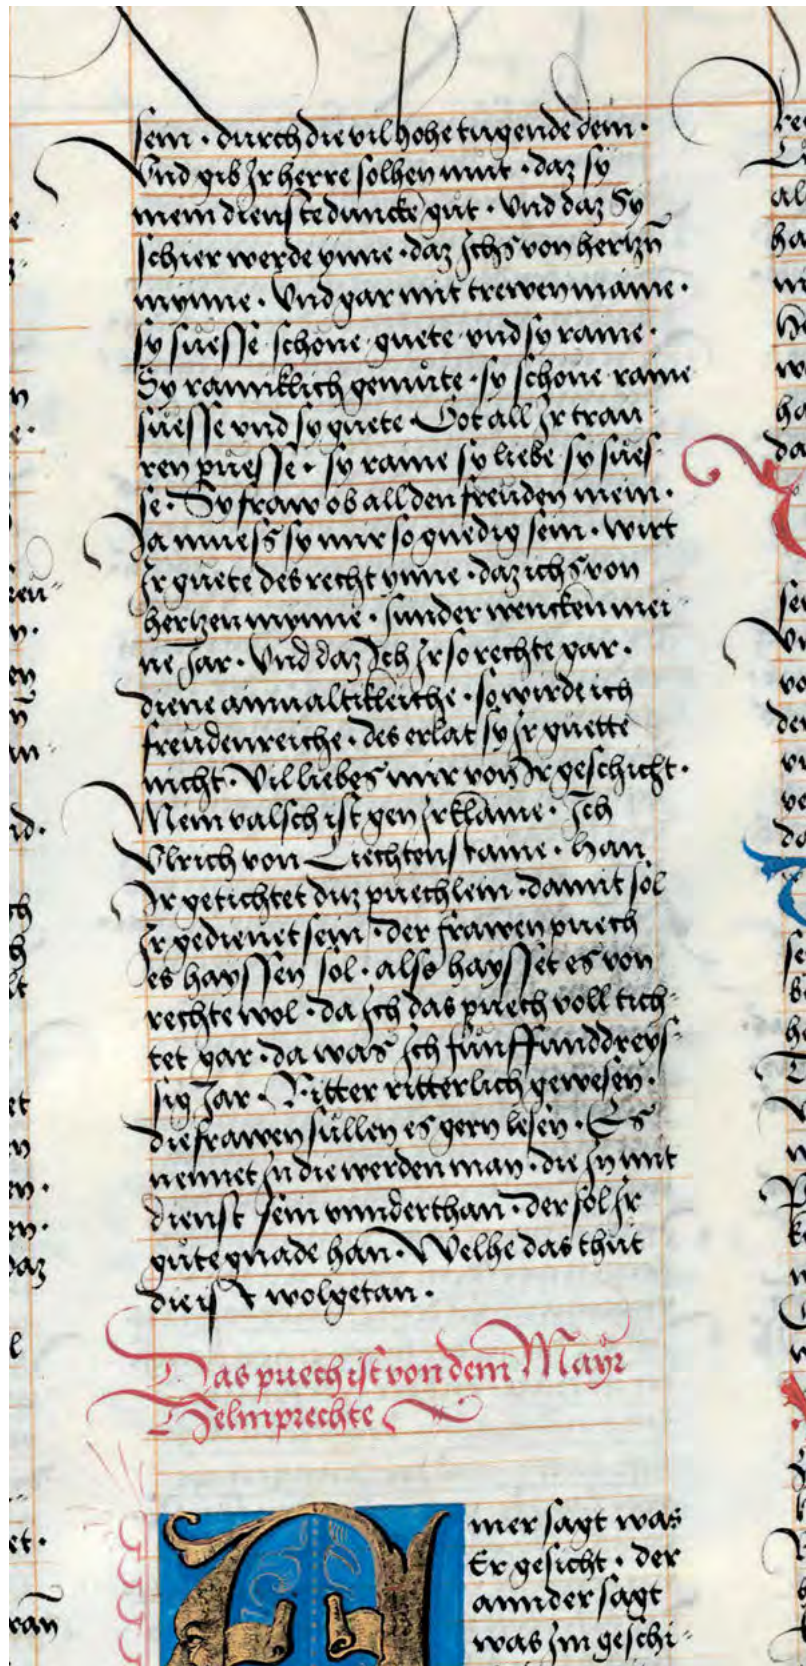 sein · durch die vil hohe tugende dein ·
Und gib Ir herre solhen mut · daz sy
mein dienste dunckē gůt · Und daz Sy
schier werde ynne · daz Ichs von hertzn̄
mynne · Und gar mit trewen maine ·
sy sůesse schöne guete vnd sy raine ·
Sy rainiklich gemůte · sy schöne raine
sůesse vnd sy guete · Got all Ir trau
ren puesse · sy raine sy liebe sy sůes
se · Sy fraw ob all den freuden mein ·
Ja muess sy mir so gnedig sein · wirt
Ir guete des recht ynne · daz ichs von
hertzen mynne · sunder wencken mei
ne Jar · Und daz Ich Ir so rechte gar ·
diene ainualtikleiche · so wirde ich
freudenreiche · des erlat sy Ir guette
nicht · Vil liebes mir von Ir geschicht ·
Mein valsch ist gen Ir klaine · Ich
Vlrich von Liechtenstaine · Han
Ir getichtet ditz puechlein · damit sol
Ir gedienet sein · der frawen puech
es hayssen sol · also haysset es von
rechte wol · da Ich das puech voll tich
tet gar · da was Ich fünffunddreys
sig Jar · Ritter ritterlich gewesen ·
die frawen süllen es gern lesen · Es
nennet In die werden man · die In mit
dienst sein vnnderthan · der sol Ir
gůte gnade han · Welhe das thut
die ist wolgetan ·
Das puech ist von dem Mayr
Helmprechte
Ainer sagt was
Er gesicht · der
annder sagt
was Im geschi